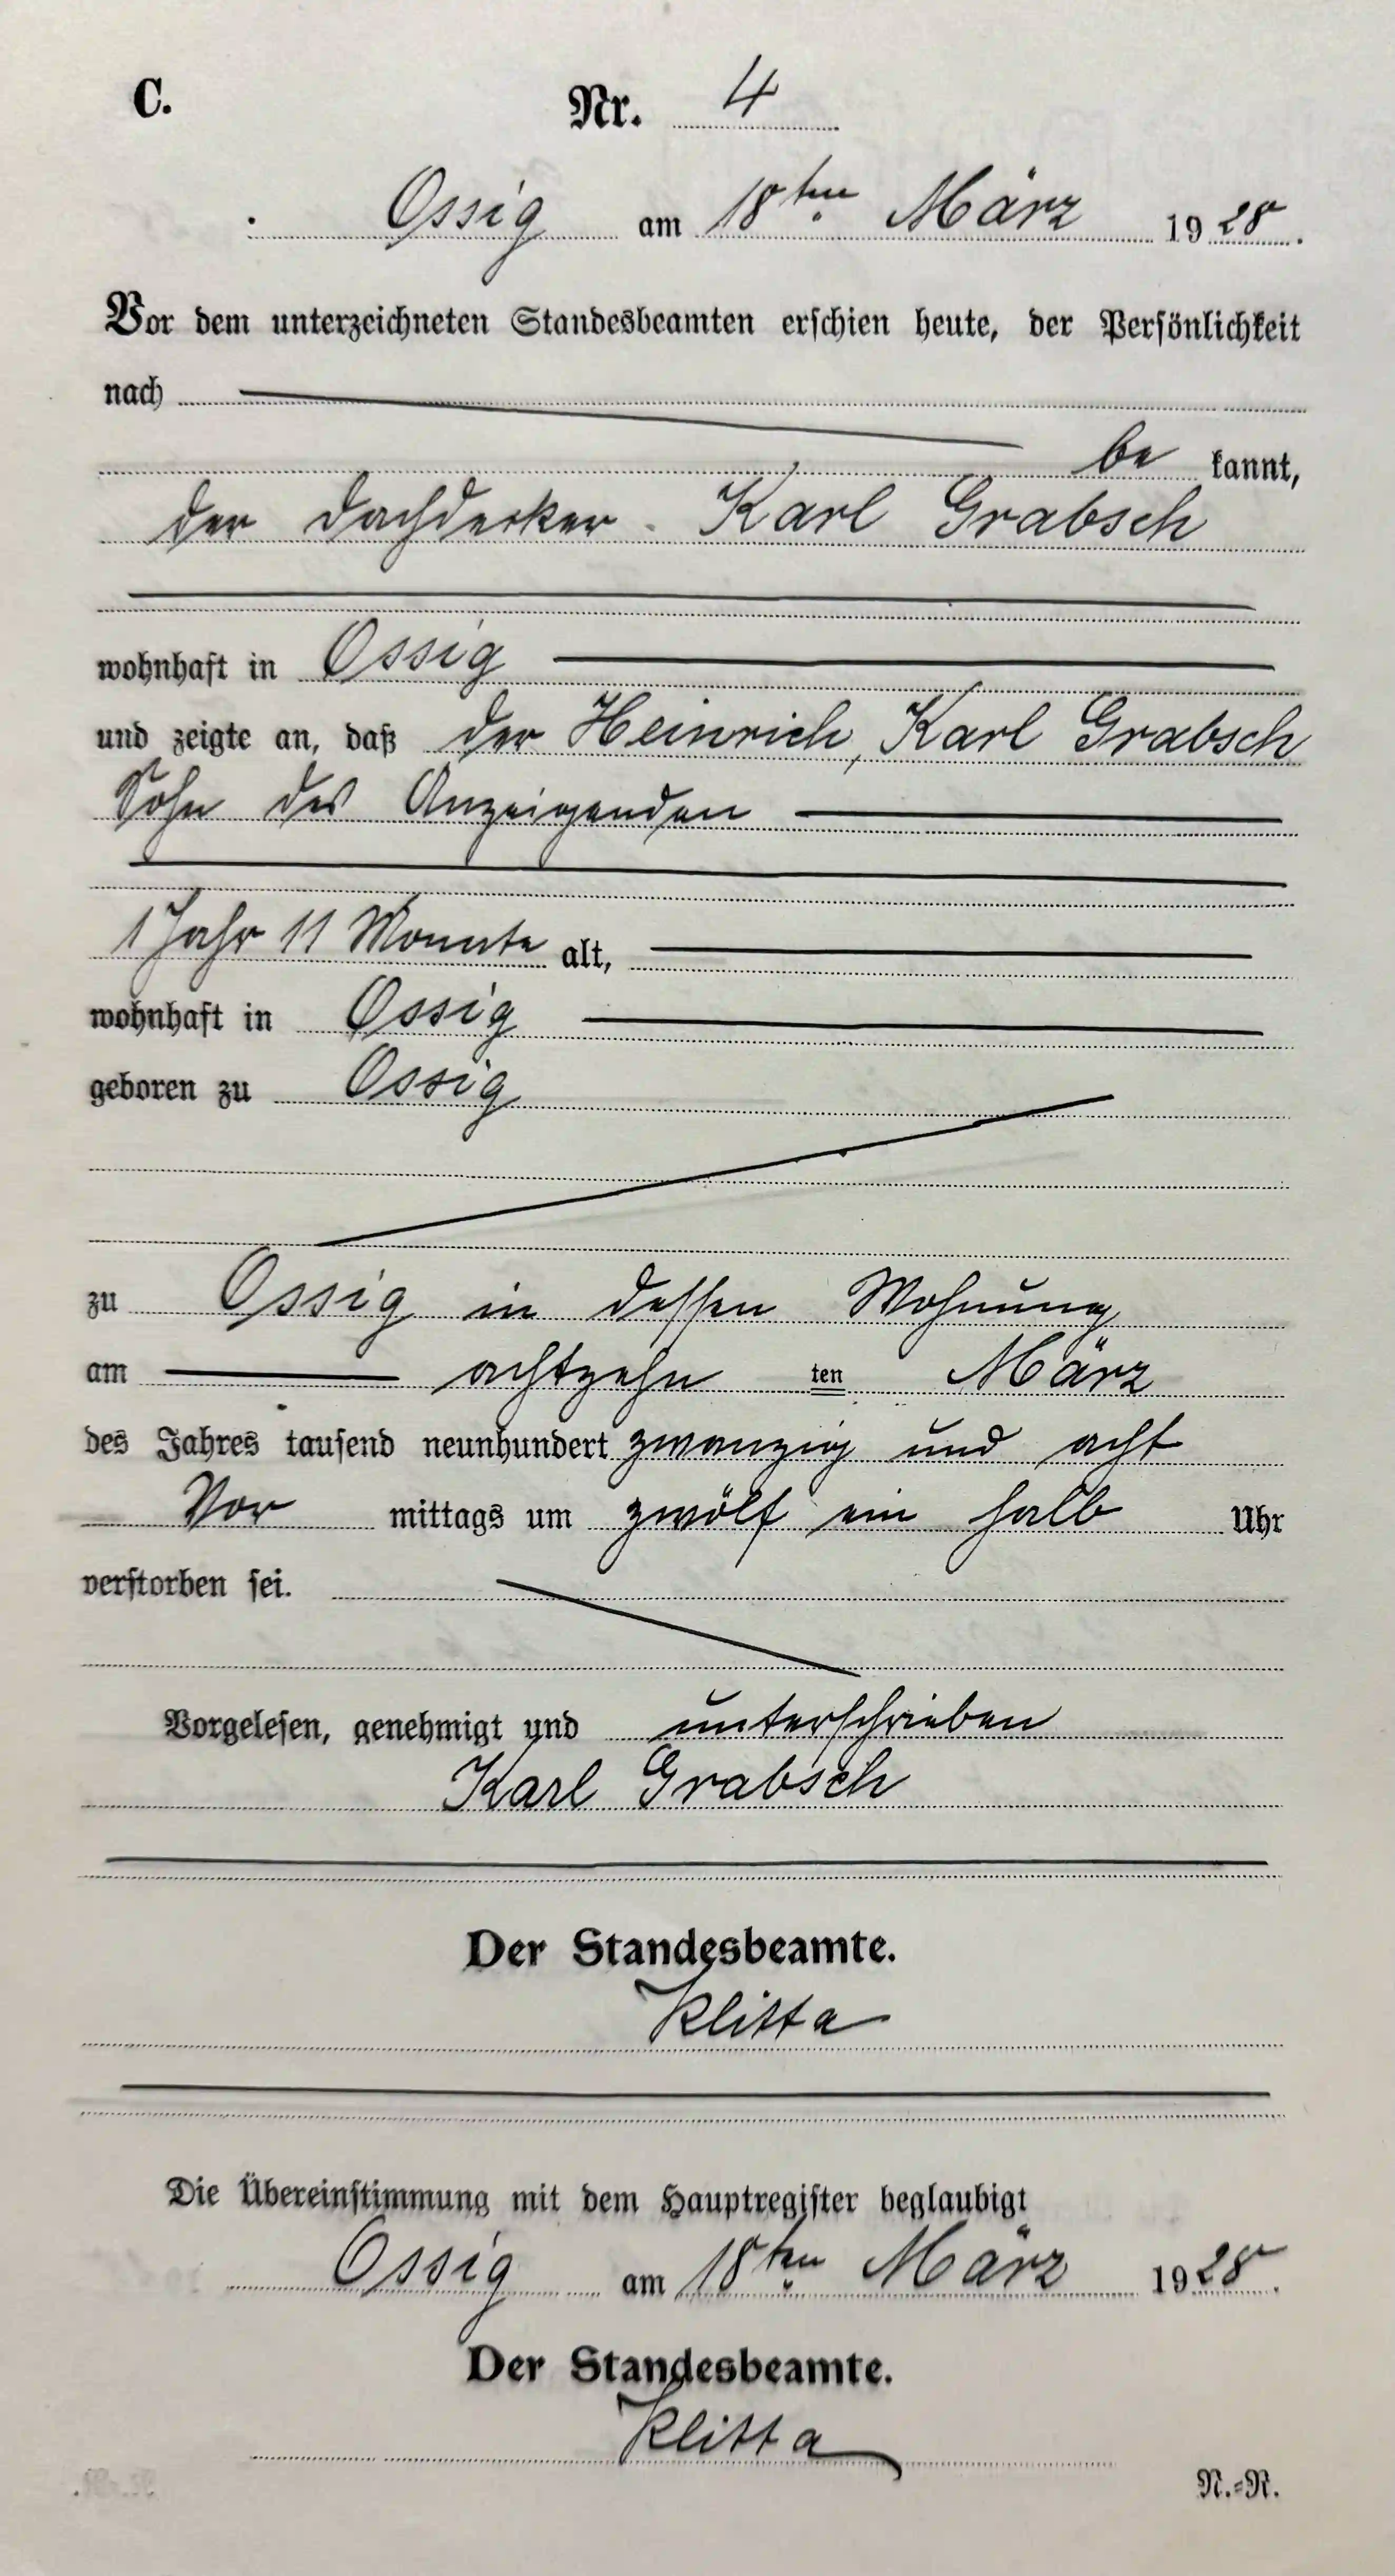 C.
Nr. 4
Ossig am 18ten März 1928.
Vor dem unterzeichneten Standesbeamten erschien heute, der Persönlichkeit
nach
be kannt,
der Dachdecker Karl Grabsch
wohnhaft in Ossig
und zeigte an, daß der Heinrich, Karl Grabsch
Sohn des Anzeigenden
1 Jahr 11 Monate alt,
wohnhaft in Ossig
geboren zu Ossig
zu Ossig in dessen Wohnung
am achtzehn ten März
des Jahres tausend neunhundert zwanzig und acht
Vor mittags um zwölf ein halb Uhr
verstorben sei.
Vorgelesen, genehmigt und unterschrieben
Karl Grabsch
Der Standesbeamte.
Klitta
Die Übereinstimmung mit dem Hauptregister beglaubigt
Ossig am 18ten März 1928.
Der Standesbeamte.
Klitta
N.=R.